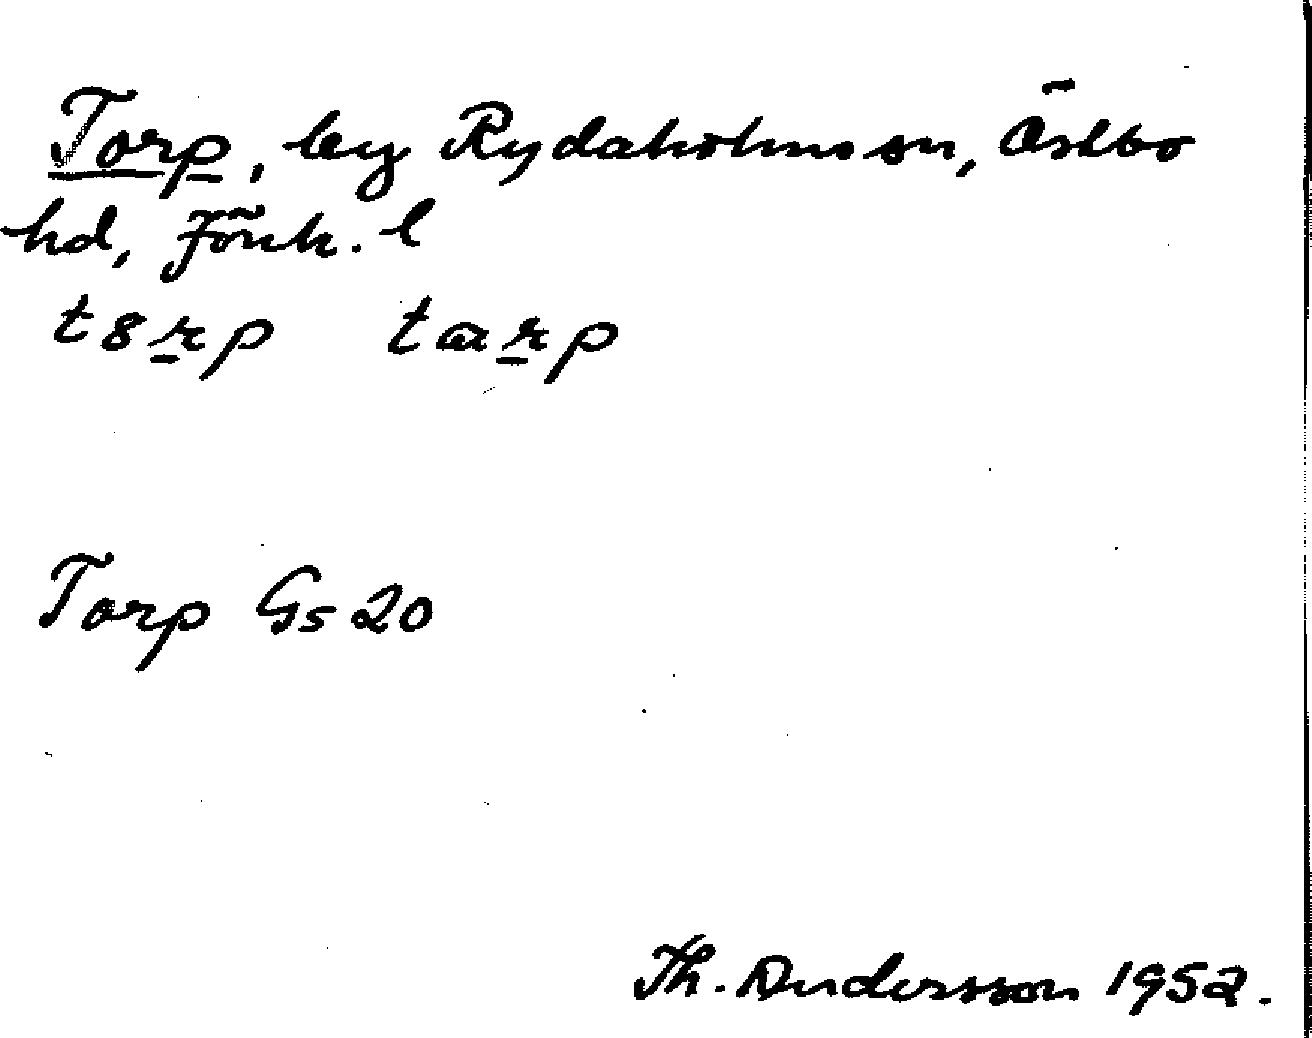 Torp, by Rydaholms sn, Östbo
hd, Jönk. l
Torp Gs 20
Th. Andersson 1952.